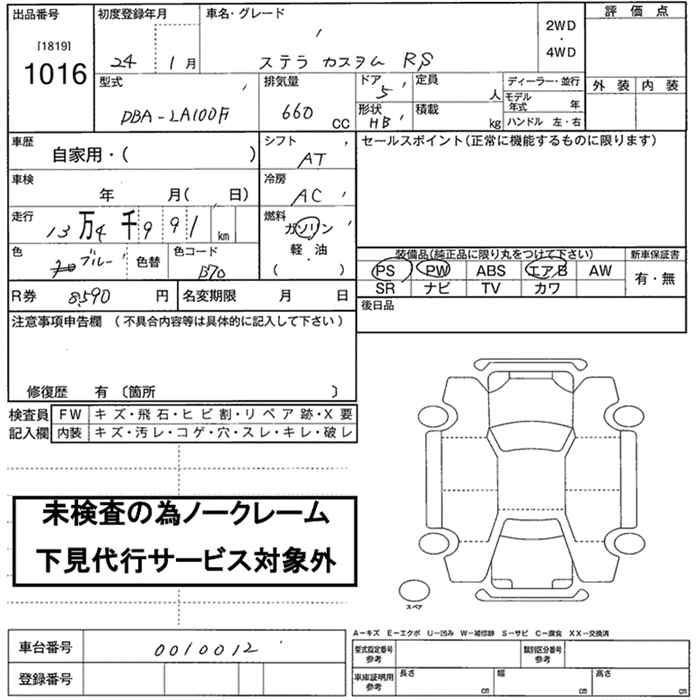 出品番号 初度登録年月 車名・グレード 2WD・4WD 評価点
[1819]
1016
24 1月 ステラ カスタム RS
外装 内装
型式 排気量 ドア 定員 ディーラー・並行
DBA-LA100F 660 CC 5 人 モデル年式 年
形状 積載
HB kg ハンドル 左・右
車歴 シフト セールスポイント(正常に機能するものに限ります)
自家用・( ) AT
車検 冷房
年 月( 日) AC
走行 燃料
13万4千991 km ガソリン
軽・油
( )
色 色替 色コード
ブルー B70
装備品(純正品に限り丸をつけて下さい) 新車保証書
PS PW ABS エアB AW 有・無
SR ナビ TV カワ
R券 8590 円 名変期限 月 日
後日品
注意事項申告欄 (不具合内容等は具体的に記入して下さい)
修復歴 有 〔箇所 〕
検査員記入欄
FW キズ・飛石・ヒビ割・リペア跡・X要
内装 キズ・汚レ・コゲ・穴・スレ・キレ・破レ
未検査の為ノークレーム
下見代行サービス対象外
スペア
A-キズ E-エクボ U-凹み W-補修跡 S-サビ C-腐食 XX-交換済
車台番号 0010012
登録番号
型式指定番号 参考 類別区分番号 参考
車庫証明用 参考 長さ cm 幅 cm 高さ cm